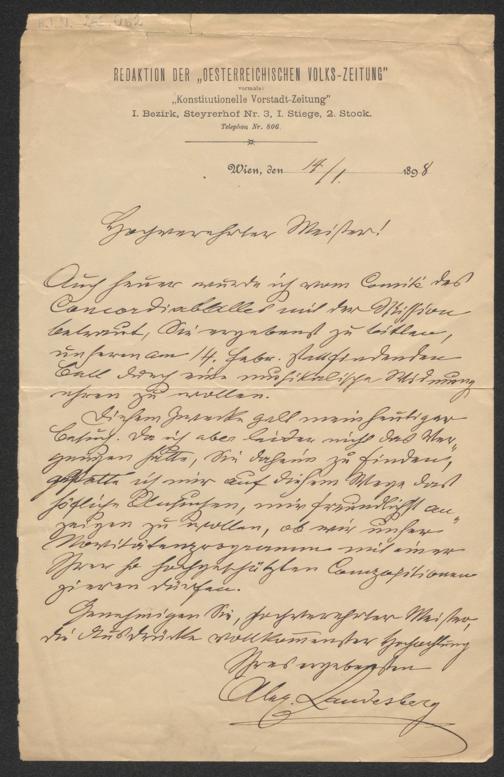 REDAKTION DER „OESTERREICHISCHEN VOLKS-ZEITUNG"
vormals:
„Konstitutionelle Vorstadt-Zeitung"
I. Bezirk, Steyrerhof Nr. 3, I. Stiege, 2. Stock.
Telephon Nr. 806.
Wien, den 14/1. 1898
Hochverehrter Meister!
Auch heuer wurde ich vom Comité des
Concordiaballes mit der Mission
betraut, Sie ergebenst zu bitten,
unseren am 14. Febr. stattfindenden
Ball durch eine musikalische Widmung
ehren zu wollen.
Diesem Zwecke galt mein heutiger
Besuch. Da ich aber leider nicht das Ver-
gnügen hatte, Sie daheim zu finden,
gestatte ich mir auf diesem Wege das
höfliche Ansuchen, mir freundlichst an-
zeigen zu wollen, ob wir unser
Novitätenprogramm mit einer
Ihrer so hochgeschätzten Compositionen
zieren dürfen.
Genehmigen Sie, hochverehrter Meister,
die Ausdrücke vollkommenster Hochachtung
Ihres ergebensten
Alex. Landesberg